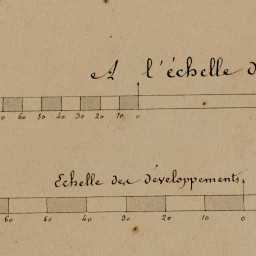 A l'échelle d
0 60 50 40 30 20 10 0
Echelle des développements.
60 50 40 30 20 10 0